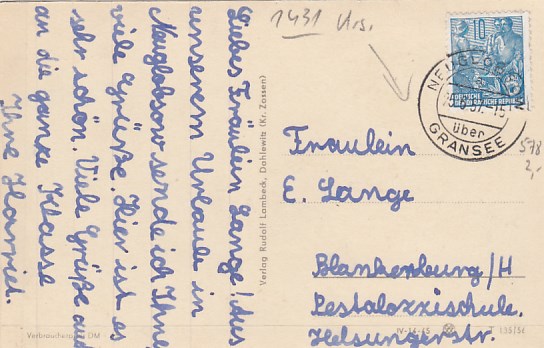 Liebes Fräulein Lange! Aus
unserem Urlaub in
Neuglobsow sende ich Ihnen
viele Grüße. Hier ist es
sehr schön. Viele Grüße auch
an die ganze Klasse
Ihre Harriet.
Verbraucherpreis DM
Verlag Rudolf Lambeck, Dahlewitz (Kr. Zossen)
1431 Urs.
10
DEUTSCHE
DEMOKRATISCHE REPUBLIK
NEUGLOBSOW
über
GRANSEE
578
2,-
Fräulein
E. Lange
Blankenburg/H
Pestalozzischule.
Helsungerstr.
IV-14-45
T 135/56